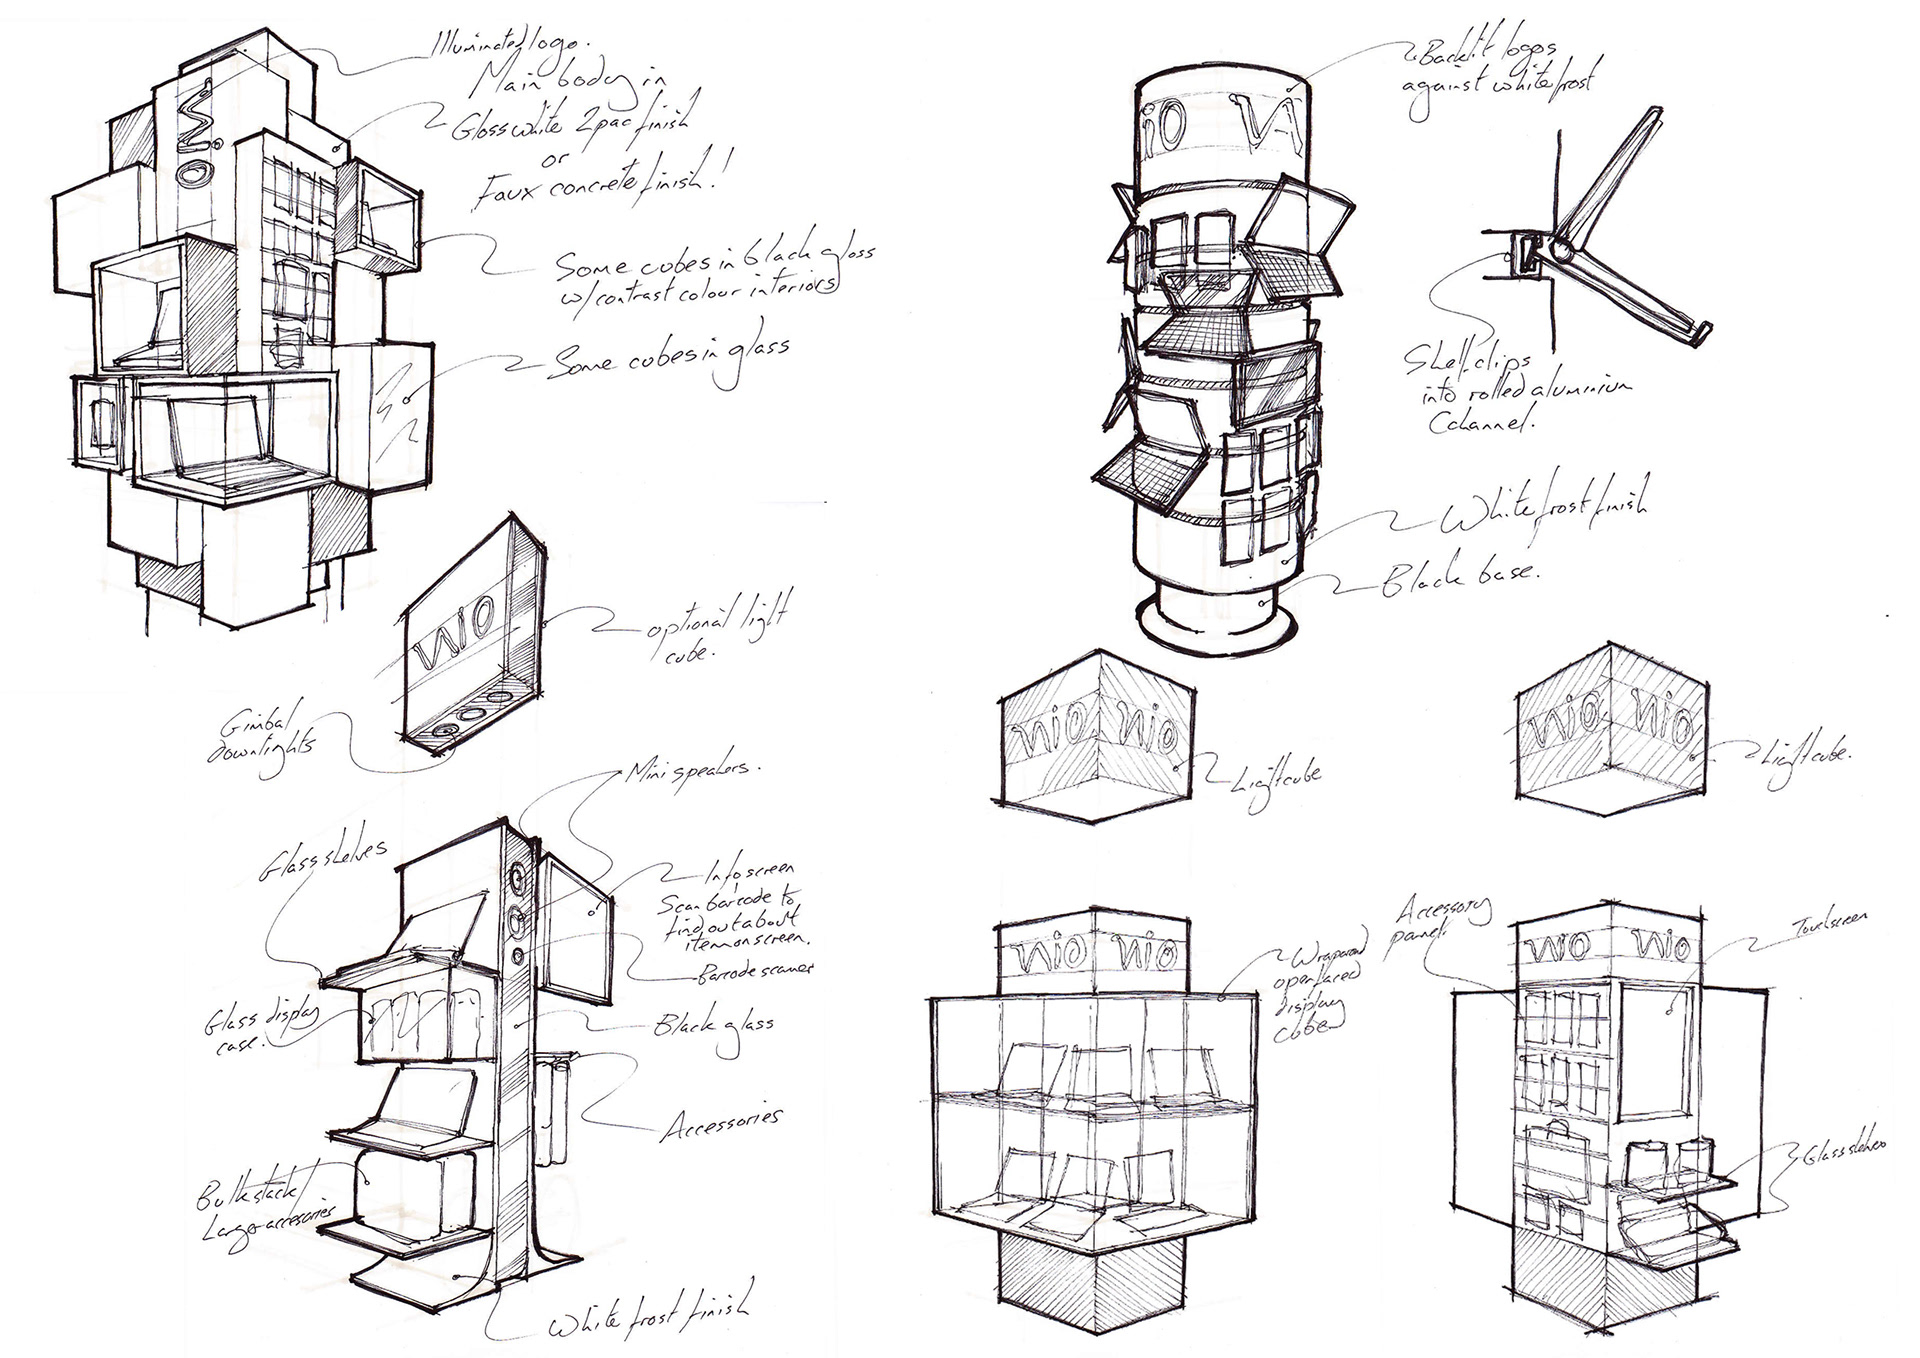 Illuminated logo.
Main body in
Gloss white 2pac finish
or
Faux concrete finish!
Some cubes in black gloss
w/contrast colour interiors
Some cubes in glass
NiO
optional light
cube.
NiO
Gimbal
Downlights
Mini speakers.
Glass shelves
Info screen
Scan barcode to
find out about
item on screen.
Barcode scanner
Glass display
case.
Black glass
Accessories
Bulkstack/
Large accessories
White frost finish
Backlit logos
against white frost
iO
Shelf clips
into rolled aluminium
C channel.
White frost finish
Black base.
NiO NiO
Lightcube
NiO NiO
Lightcube.
NiO NiO
Wraparound
open faced
display
cube
Accessory
panel.
Touchscreen
NiO NiO
Glass shelves